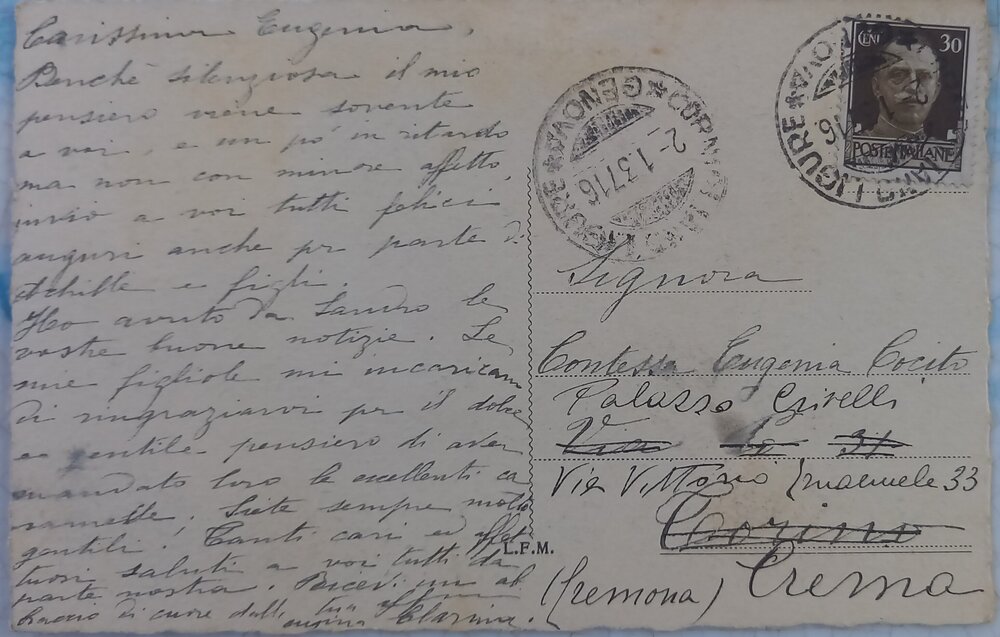 Carissima Eugenia,
Benchè silenziosa il mio
pensiero viene sovente
a voi, e un pò in ritardo
ma non con minore affetto,
invio a voi tutti felici
auguri anche pr parte di
Achille e figli.
Ho avuto da Sandro le
vostre buone notizie. Le
mie figliole mi incaricano
di ringraziarvi per il dolce
e gentile pensiero di aver
mandato loro le eccellenti ca
ramelle. Siete sempre molto
gentili! Tanti cari ed affet
tuosi saluti a voi tutti da
parte nostra. Ricevi un ab
braccio di cuore dalla tua aff.ma
cugina Clarina.
L.F.M.
CORNIGLIANO LIGURE * GENOVA *
2-1.37 16
CENT 30
POSTE ITALIANE
LIGURE * GENOVA
16
Signora
Contessa Eugenia Cocito
Palazzo Crivelli
Via 31
Via Vittorio Emanuele 33
(Cremona) Crema